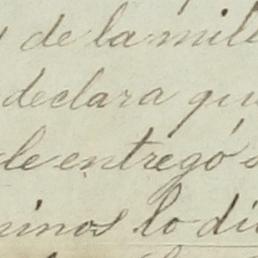 de la mil
declara qu
le entregó
minos lo di